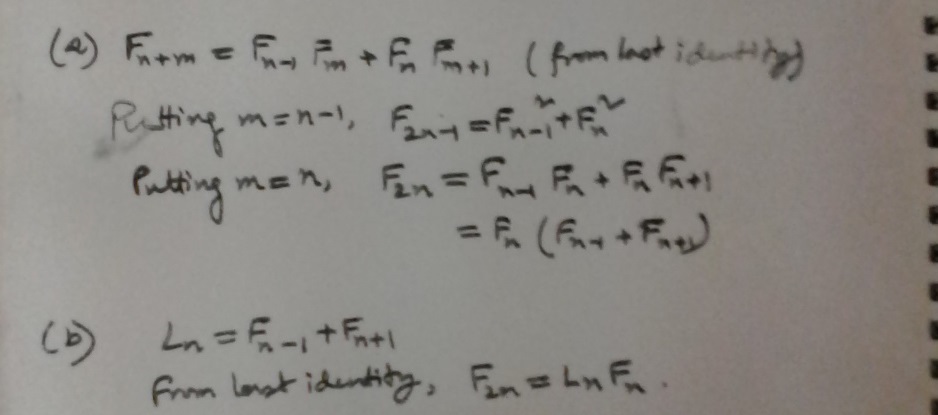 (a) Fn+m = Fn-1 Fm + Fn Fm+1 (from last identity)
Putting m=n-1, F2n-1 = Fn-1² + Fn²
Putting m=n, F2n = Fn-1 Fn + Fn Fn+1
= Fn (Fn-1 + Fn+1)
(b) Ln = Fn-1 + Fn+1
From last identity, F2n = Ln Fn.